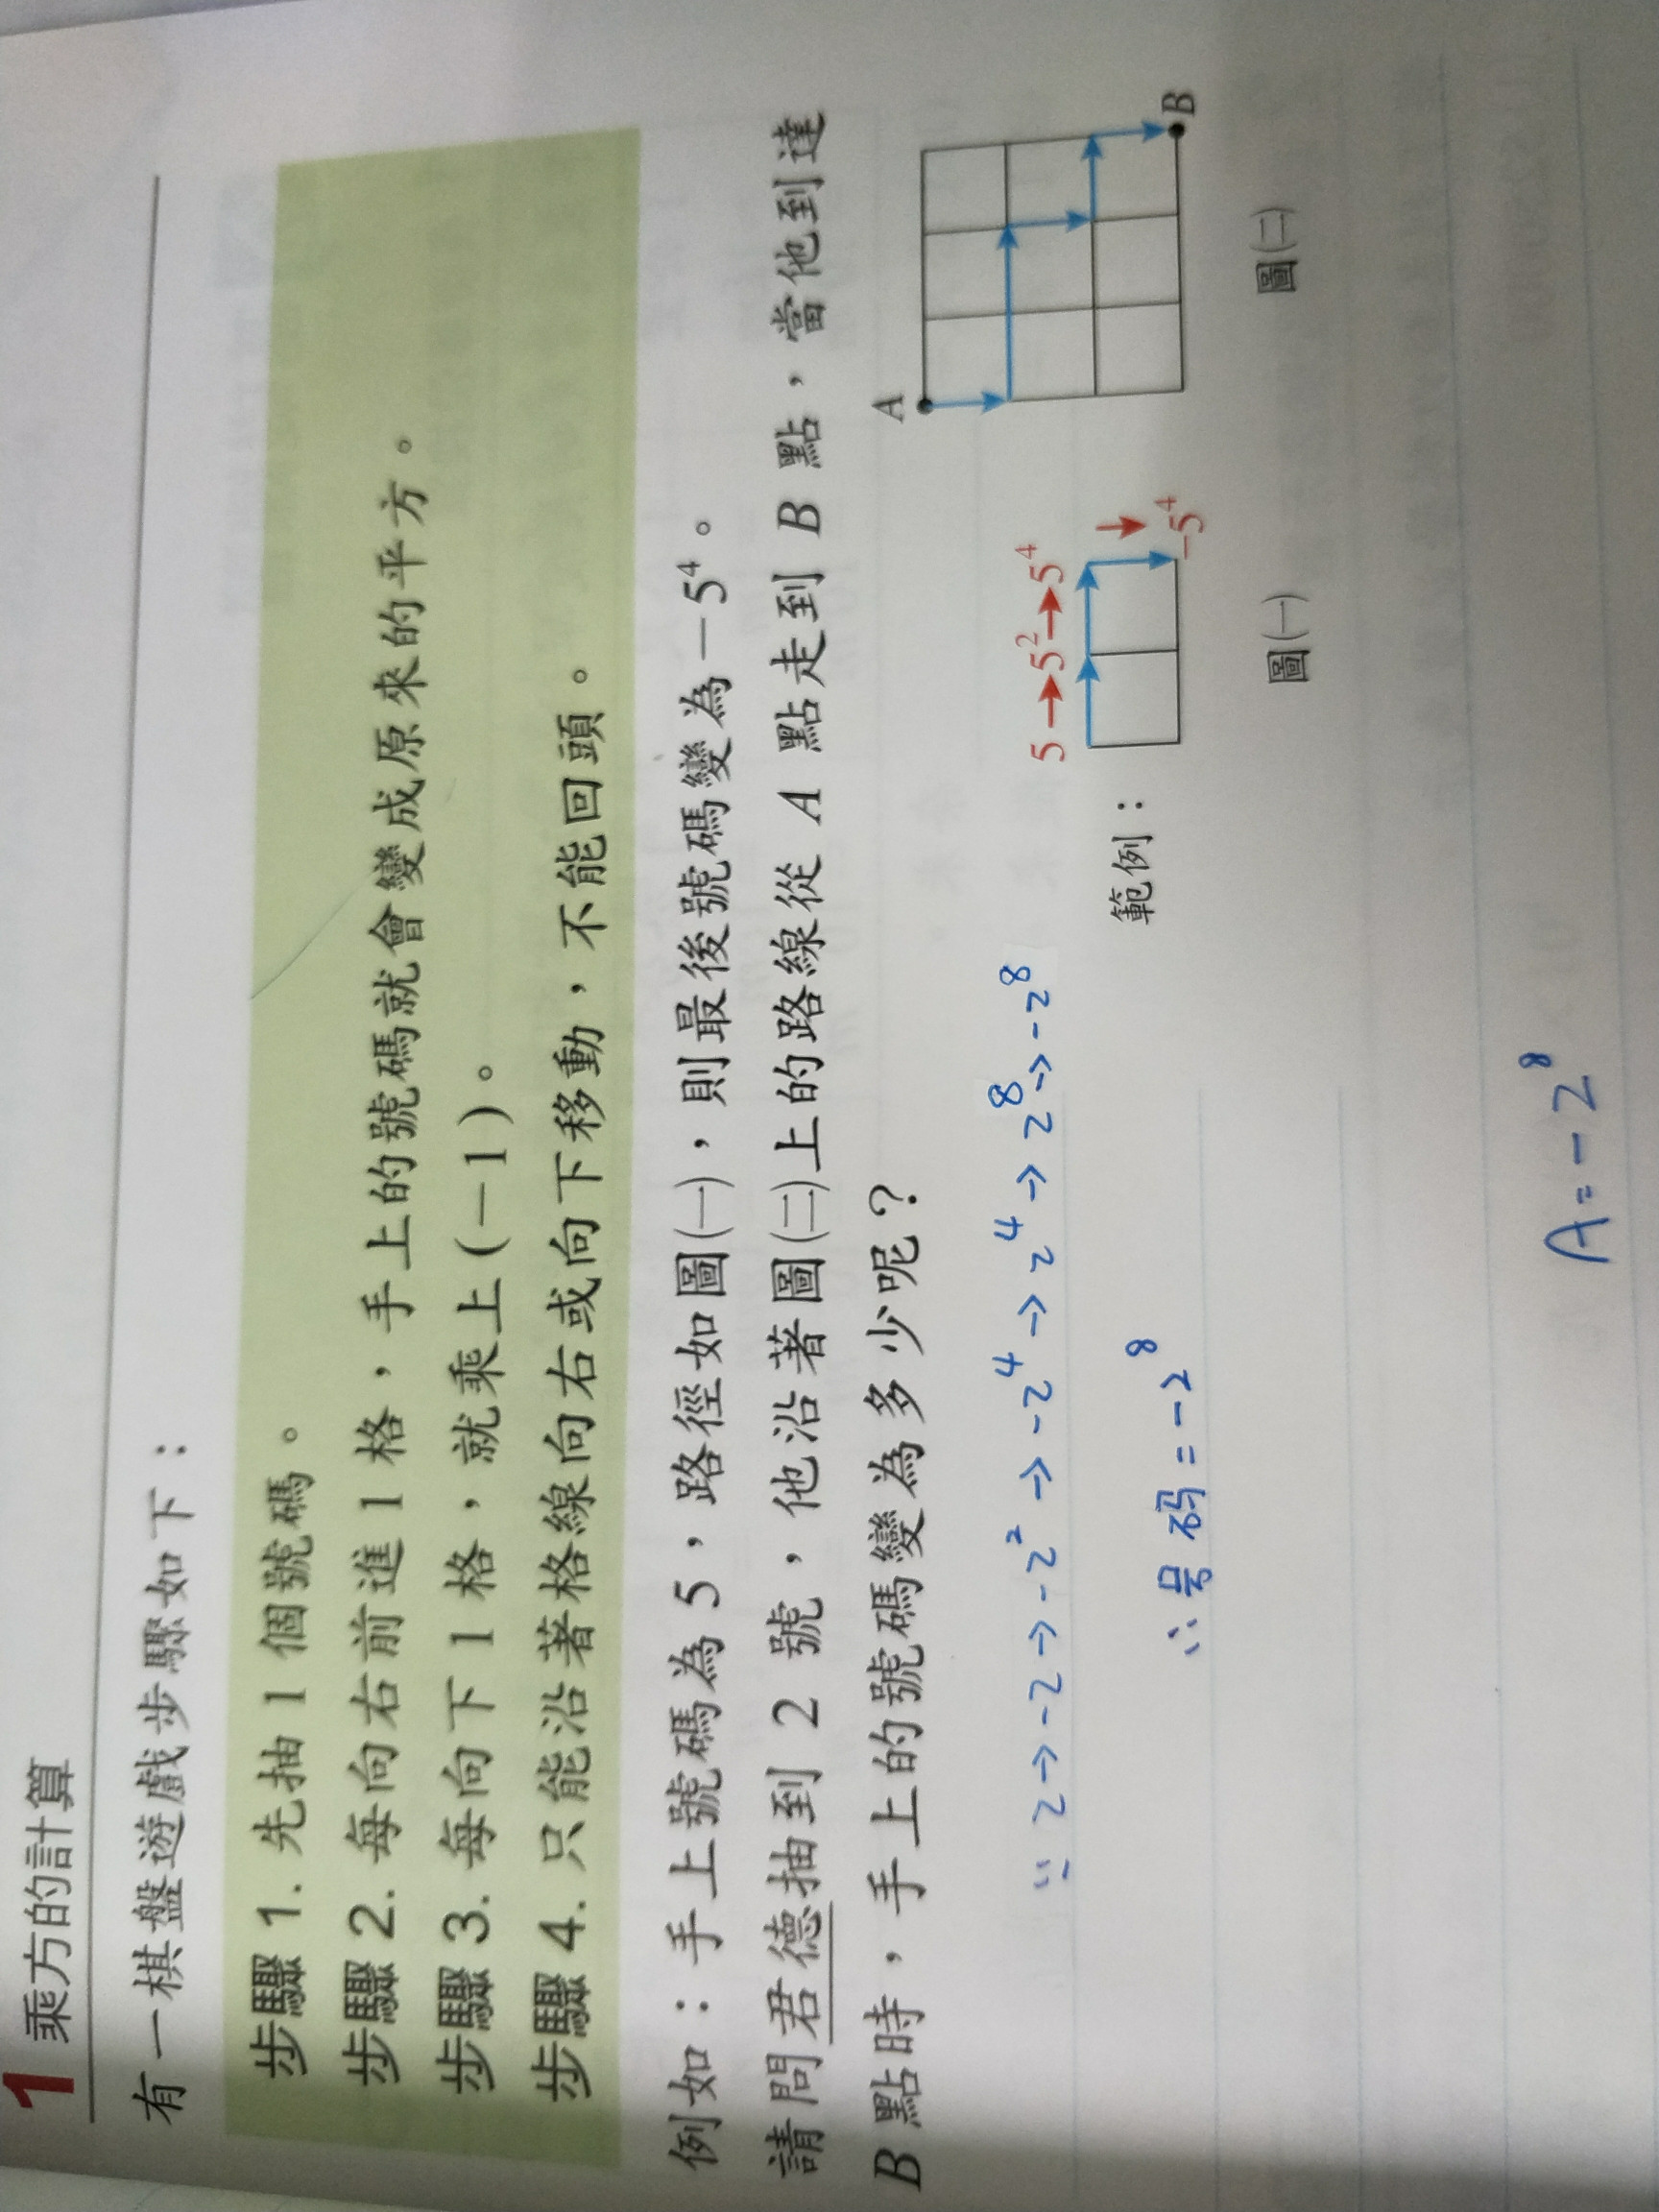 1 乘方的計算
有一棋盤遊戲步驟如下：
步驟 1. 先抽 1 個號碼。
步驟 2. 每向右前進 1 格，手上的號碼就會變成原來的平方。
步驟 3. 每向下 1 格，就乘上(－1)。
步驟 4. 只能沿著格線向右或向下移動，不能回頭。
例如：手上號碼為 5，路徑如圖㈠，則最後號碼變為－5⁴。
請問君德抽到 2 號，他沿著圖㈡上的路線從 A 點走到 B 點，當他到達
B 點時，手上的號碼變為多少呢？
∵ 2→-2→-2²→-2⁴→2⁴→2⁸→-2⁸
∴号码=-2⁸
範例：
5→5²→5⁴
↓
-5⁴
圖㈠
A
B
圖㈡
A=-2⁸